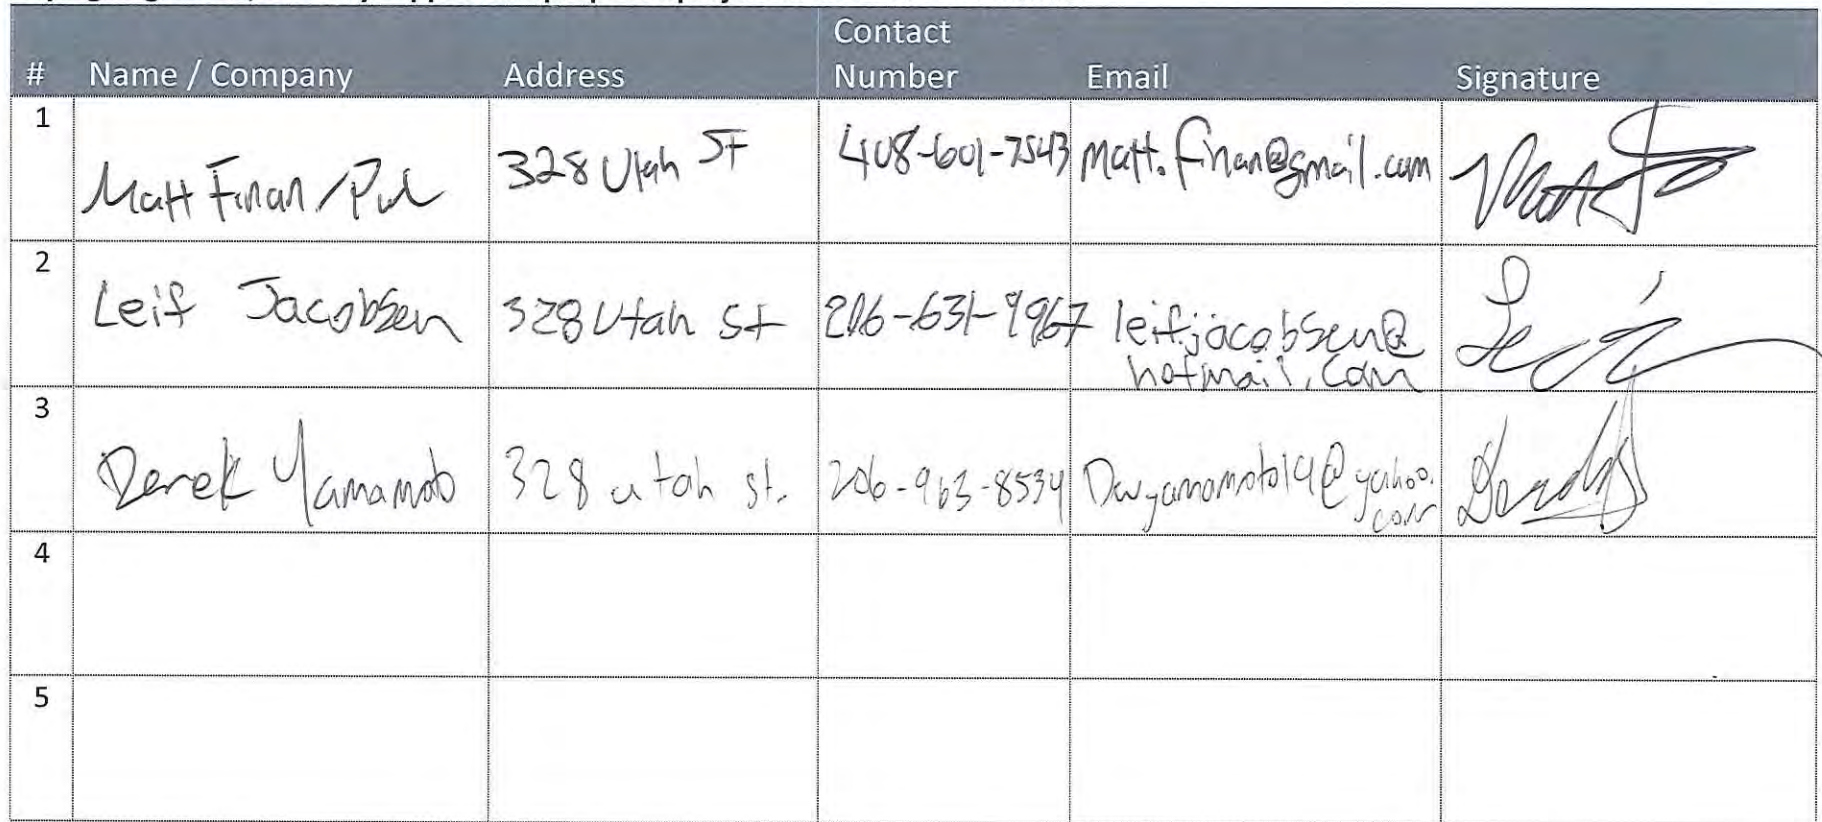 Contact
# Name / Company Address Number Email Signature
1
Matt Finan / 328 Utah St 408-601-7543 Matt.finan@gmail.com
2
Leif Jacobsen 328 Utah St 206-631-9967 leif.jacobsen@
hotmail.com
3
Derek Yamamoto 328 utah st. 206-963-8534 Dwyamamoto14@yahoo.
com
4
5